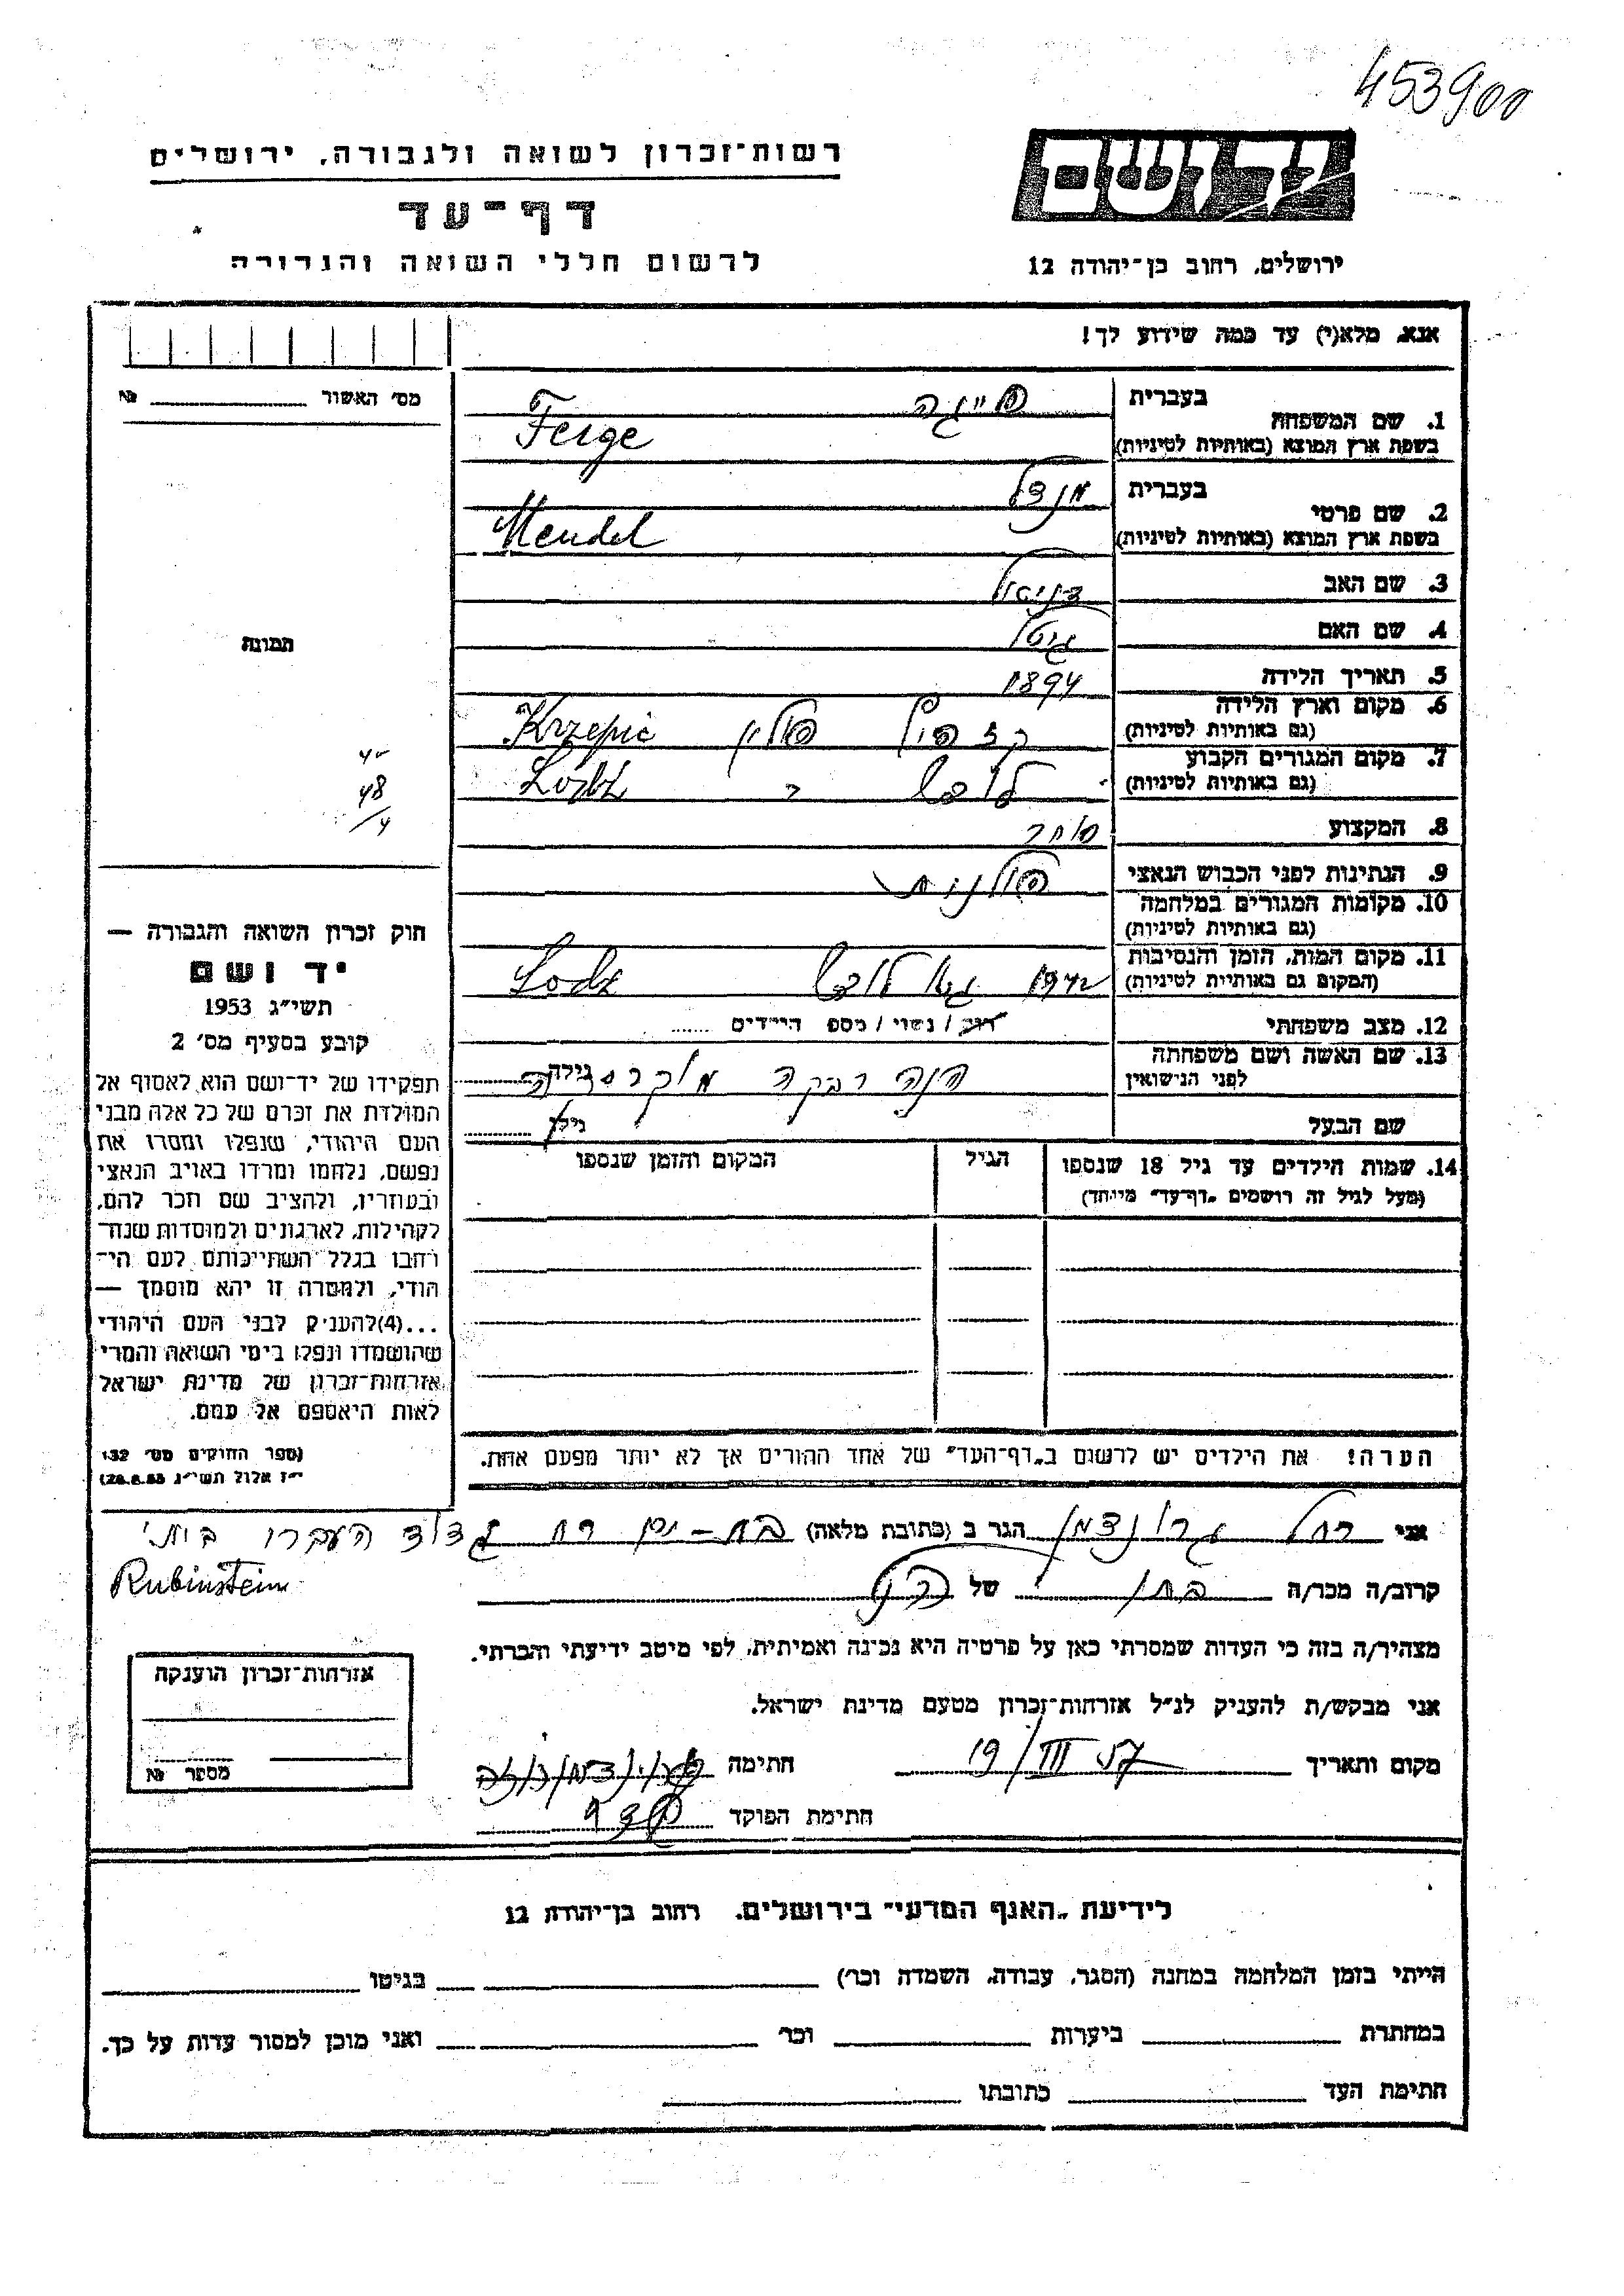 453900
רשות־זכרון לשואה ולגבורה, ירושלים
יד ושם
דף־עד
לרשום חללי השואה והגבורה
ירושלים, רחוב בן־יהודה 12
אנא, מלא(י) עד כמה שידוע לך!
מס׳ האשור №
1. שם המשפחה
בעברית פייגה
בשפת ארץ המוצא (באותיות לטיניות) Feige
2. שם פרטי
בעברית מנדל
בשפת ארץ המוצא (באותיות לטיניות) Mendel
3. שם האב דניאל
4. שם האם גיטל
תמונה
5. תאריך הלידה 1894
6. מקום וארץ הלידה
(גם באותיות לטיניות) פולין Krzepic
7. מקום המגורים הקבוע
(גם באותיות לטיניות) לודז׳ Lodz
48
4
8. המקצוע סוחר
9. הנתינות לפני הכבוש הנאצי פולנית
10. מקומות המגורים במלחמה
(גם באותיות לטיניות)
11. מקום המות, הזמן והנסיבות
(המקום גם באותיות לטיניות) 1942 גטו לודז׳ Lodz
12. מצב משפחתי רווק / נשוי / מספר הילדים
13. שם האשה ושם משפחתה
לפני הנישואין חנה רבקה גילה
שם הבעל גילו
14. שמות הילדים עד גיל 18 שנספו
(מעל לגיל זה רושמים „דף־עד״ מיוחד)
הגיל
המקום והזמן שנספו
חוק זכרון השואה והגבורה —
יד ושם
תשי״ג 1953
קובע בסעיף מס׳ 2
תפקידו של יד־ושם הוא לאסוף אל
המולדת את זכרם של כל אלה מבני
העם היהודי, שנפלו ומסרו את
נפשם, נלחמו ומרדו באויב הנאצי
ובעוזריו, ולהציב שם וזכר להם,
לקהילות, לארגונים ולמוסדות שנח־
רבו בגלל השתייכותם לעם הי־
הודי, ולמטרה זו יהא מוסמך —
...(4)להעניק לבני העם היהודי
שהושמדו ונפלו בימי השואה והמרי
אזרחות־זכרון של מדינת ישראל
לאות היאספם אל עמם.
(ספר החוקים מס׳ 132
י״ז אלול תשי״ג 28.8.53)
הערה! את הילדים יש לרשום ב„דף־העד״ של אחד ההורים אך לא יותר מפעם אחת.
אני רחל גרונדמן הגר ב (כתובת מלאה) בת-ים רח גדוד העברי
Rubinstein
קרוב/ה מכר/ה בתו של הנ״ל
מצהיר/ה בזה כי העדות שמסרתי כאן על פרטיה היא נכונה ואמיתית, לפי מיטב ידיעתי והכרתי.
אני מבקש/ת להעניק לנ״ל אזרחות־זכרון מטעם מדינת ישראל.
מקום ותאריך 19/III 57 חתימה
חתימת הפוקד
אזרחות־זכרון הוענקה
מספר №
לידיעת „האגף המדעי״ בירושלים, רחוב בן־יהודה 12
הייתי בזמן המלחמה במחנה (הסגר, עבודה, השמדה וכו׳) בגיטו
במחתרת ביערות וכו׳ ואני מוכן למסור עדות על כך.
חתימת העד כתובתו